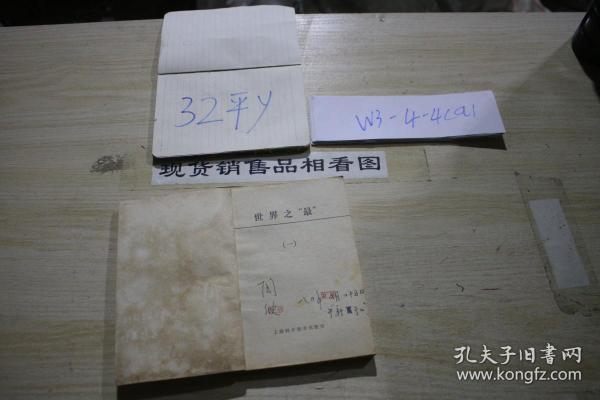 32平y
W3-4-4(a)
现货销售品相看图
世界之“最”
（一）
上海科学技术出版社
孔夫子旧书网
www.kongfz.com